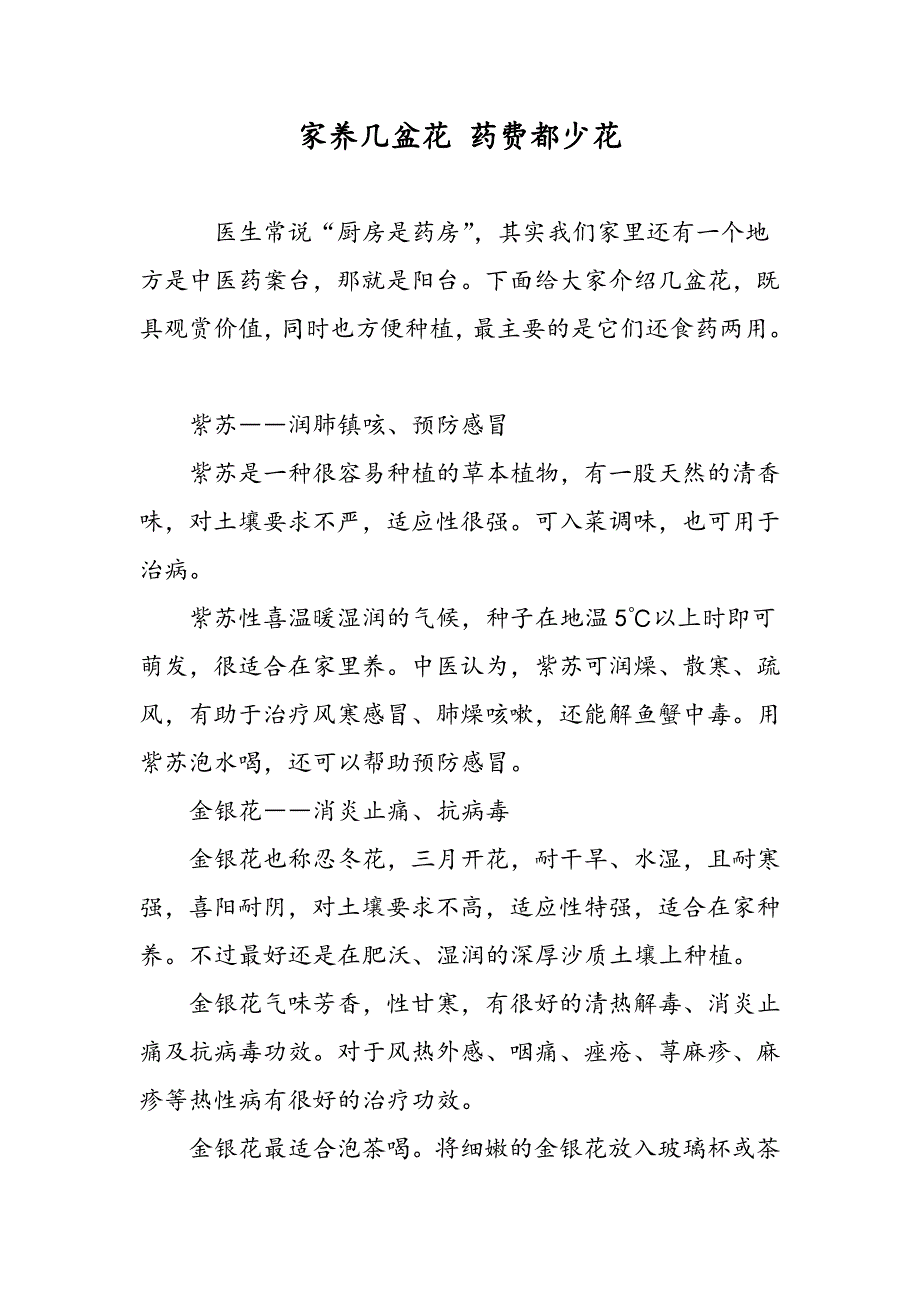 家养几盆花 药费都少花
医生常说“厨房是药房”，其实我们家里还有一个地
方是中医药案台，那就是阳台。下面给大家介绍几盆花，既
具观赏价值，同时也方便种植，最主要的是它们还食药两用。
紫苏——润肺镇咳、预防感冒
紫苏是一种很容易种植的草本植物，有一股天然的清香
味，对土壤要求不严，适应性很强。可入菜调味，也可用于
治病。
紫苏性喜温暖湿润的气候，种子在地温 5℃以上时即可
萌发，很适合在家里养。中医认为，紫苏可润燥、散寒、疏
风，有助于治疗风寒感冒、肺燥咳嗽，还能解鱼蟹中毒。用
紫苏泡水喝，还可以帮助预防感冒。
金银花——消炎止痛、抗病毒
金银花也称忍冬花，三月开花，耐干旱、水湿，且耐寒
强，喜阳耐阴，对土壤要求不高，适应性特强，适合在家种
养。不过最好还是在肥沃、湿润的深厚沙质土壤上种植。
金银花气味芳香，性甘寒，有很好的清热解毒、消炎止
痛及抗病毒功效。对于风热外感、咽痛、痤疮、荨麻疹、麻
疹等热性病有很好的治疗功效。
金银花最适合泡茶喝。将细嫩的金银花放入玻璃杯或茶